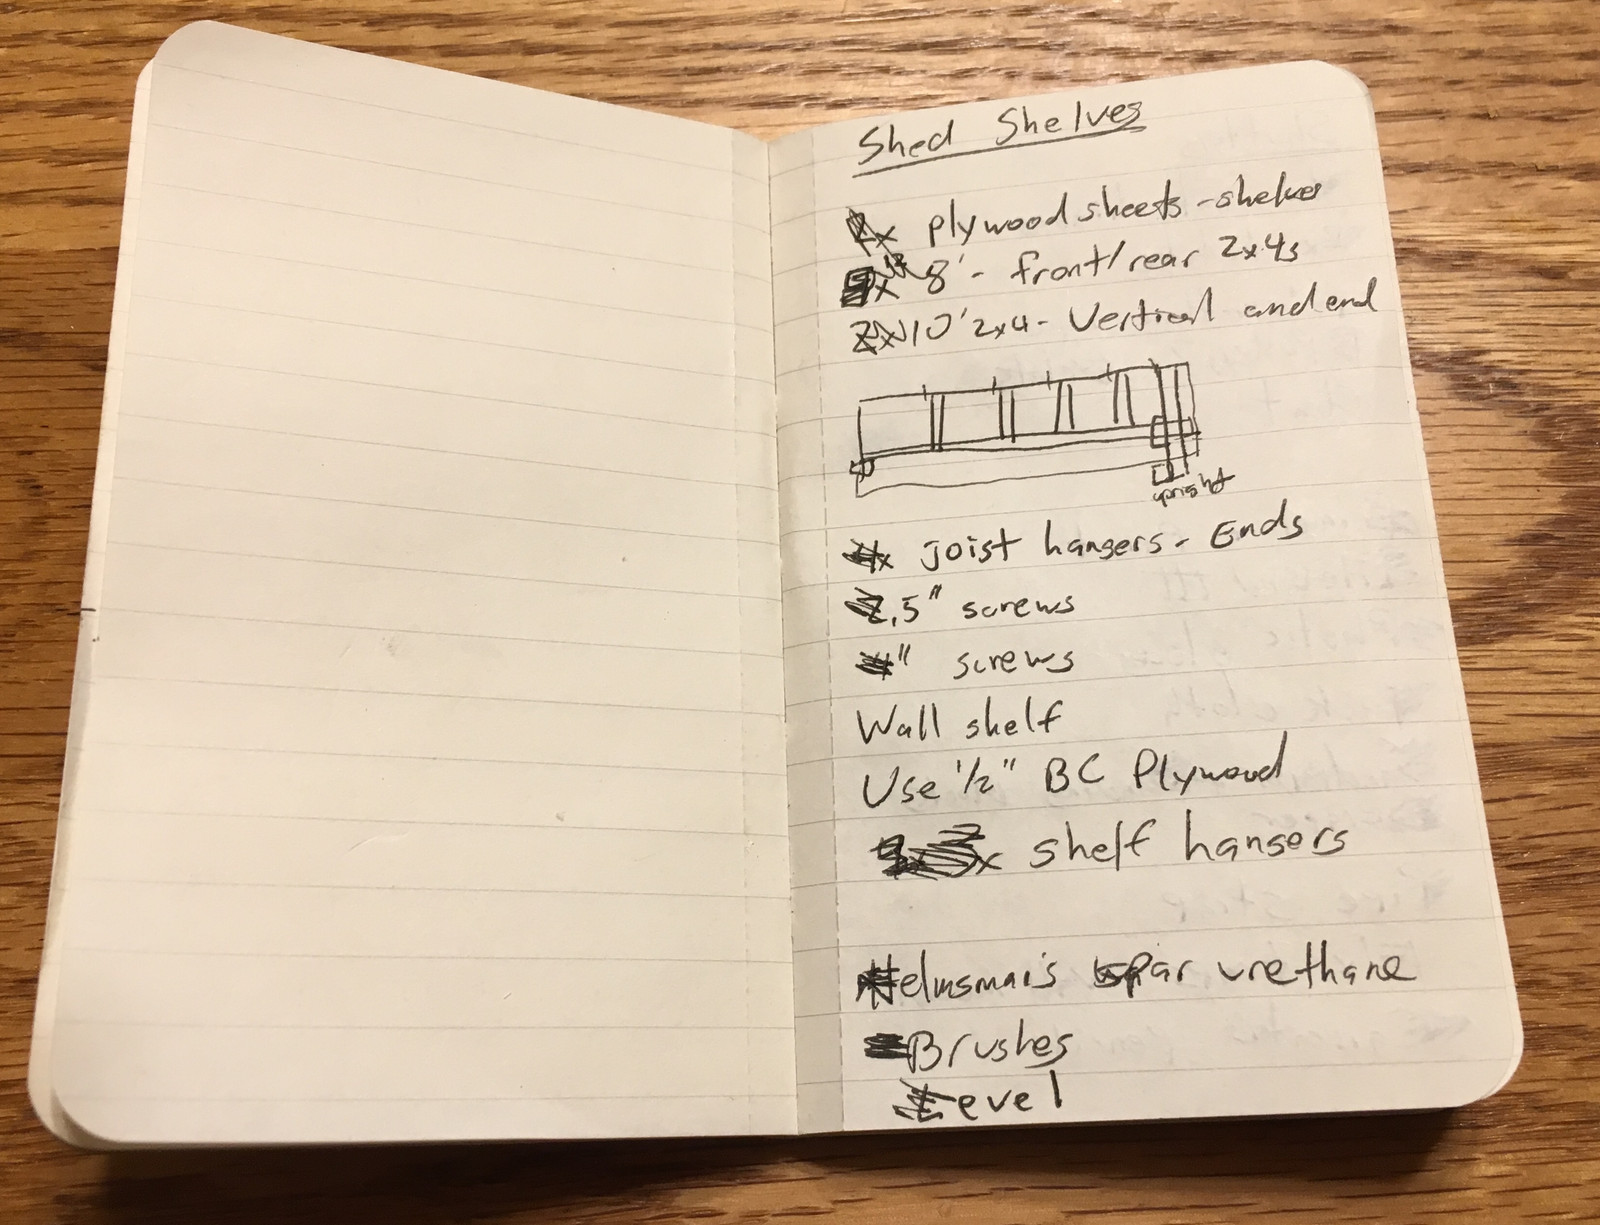 Shed Shelves
2x plywood sheets - shelves
8' - front/rear 2x4s
2x 10' 2x4 - Vertical and end
upright
4x joist hangers - Ends
2.5" screws
4" screws
Wall shelf
Use 1/2" BC Plywood
shelf hangers
Helmsman's spar urethane
Brushes
Level